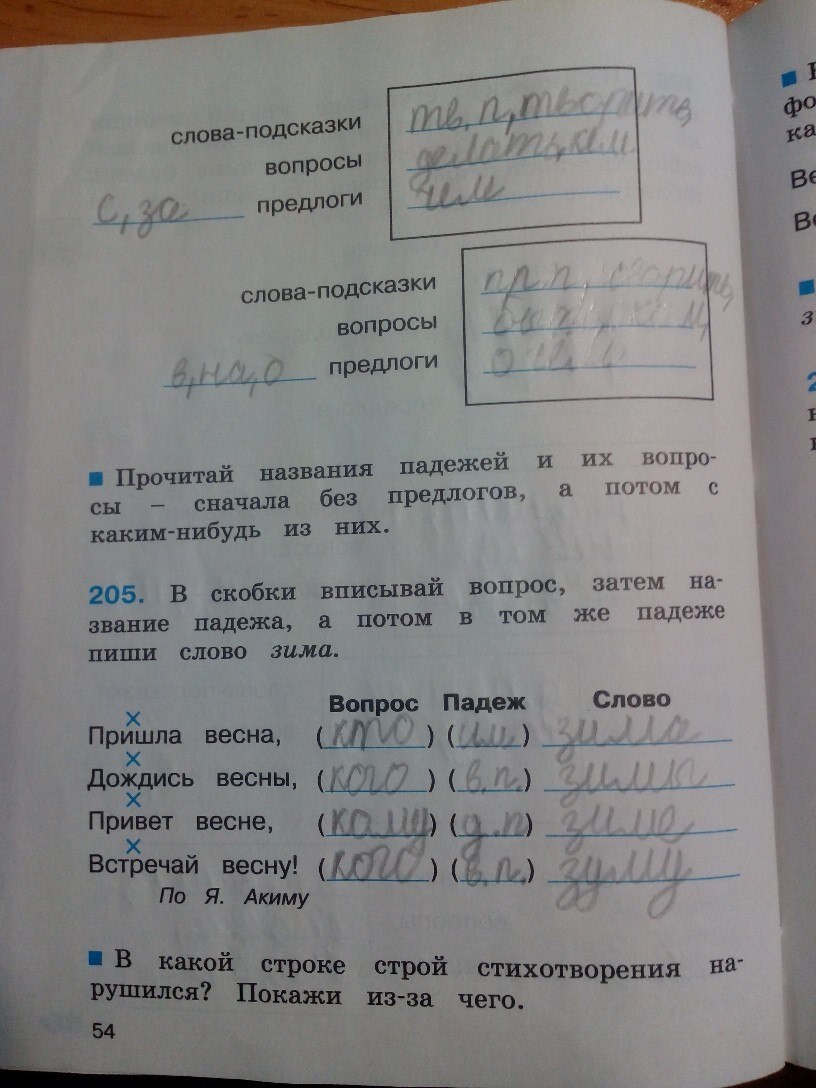 слова-подсказки тв. п., творить,
вопросы делать, кем
с, за предлоги чем
слова-подсказки пр п,
вопросы
в, на, о предлоги
■ Прочитай названия падежей и их вопро-
сы – сначала без предлогов, а потом с
каким-нибудь из них.
205. В скобки вписывай вопрос, затем на-
звание падежа, а потом в том же падеже
пиши слово зима.
Вопрос Падеж Слово
Пришла весна, (кто) (им) зима
Дождись весны, (кого) (в.п.) зимы
Привет весне, (кому) (д.п) зиме
Встречай весну! (кого) (в.п.) зуму
По Я. Акиму
■ В какой строке строй стихотворения на-
рушился? Покажи из-за чего.
54
фо
ка
Ве